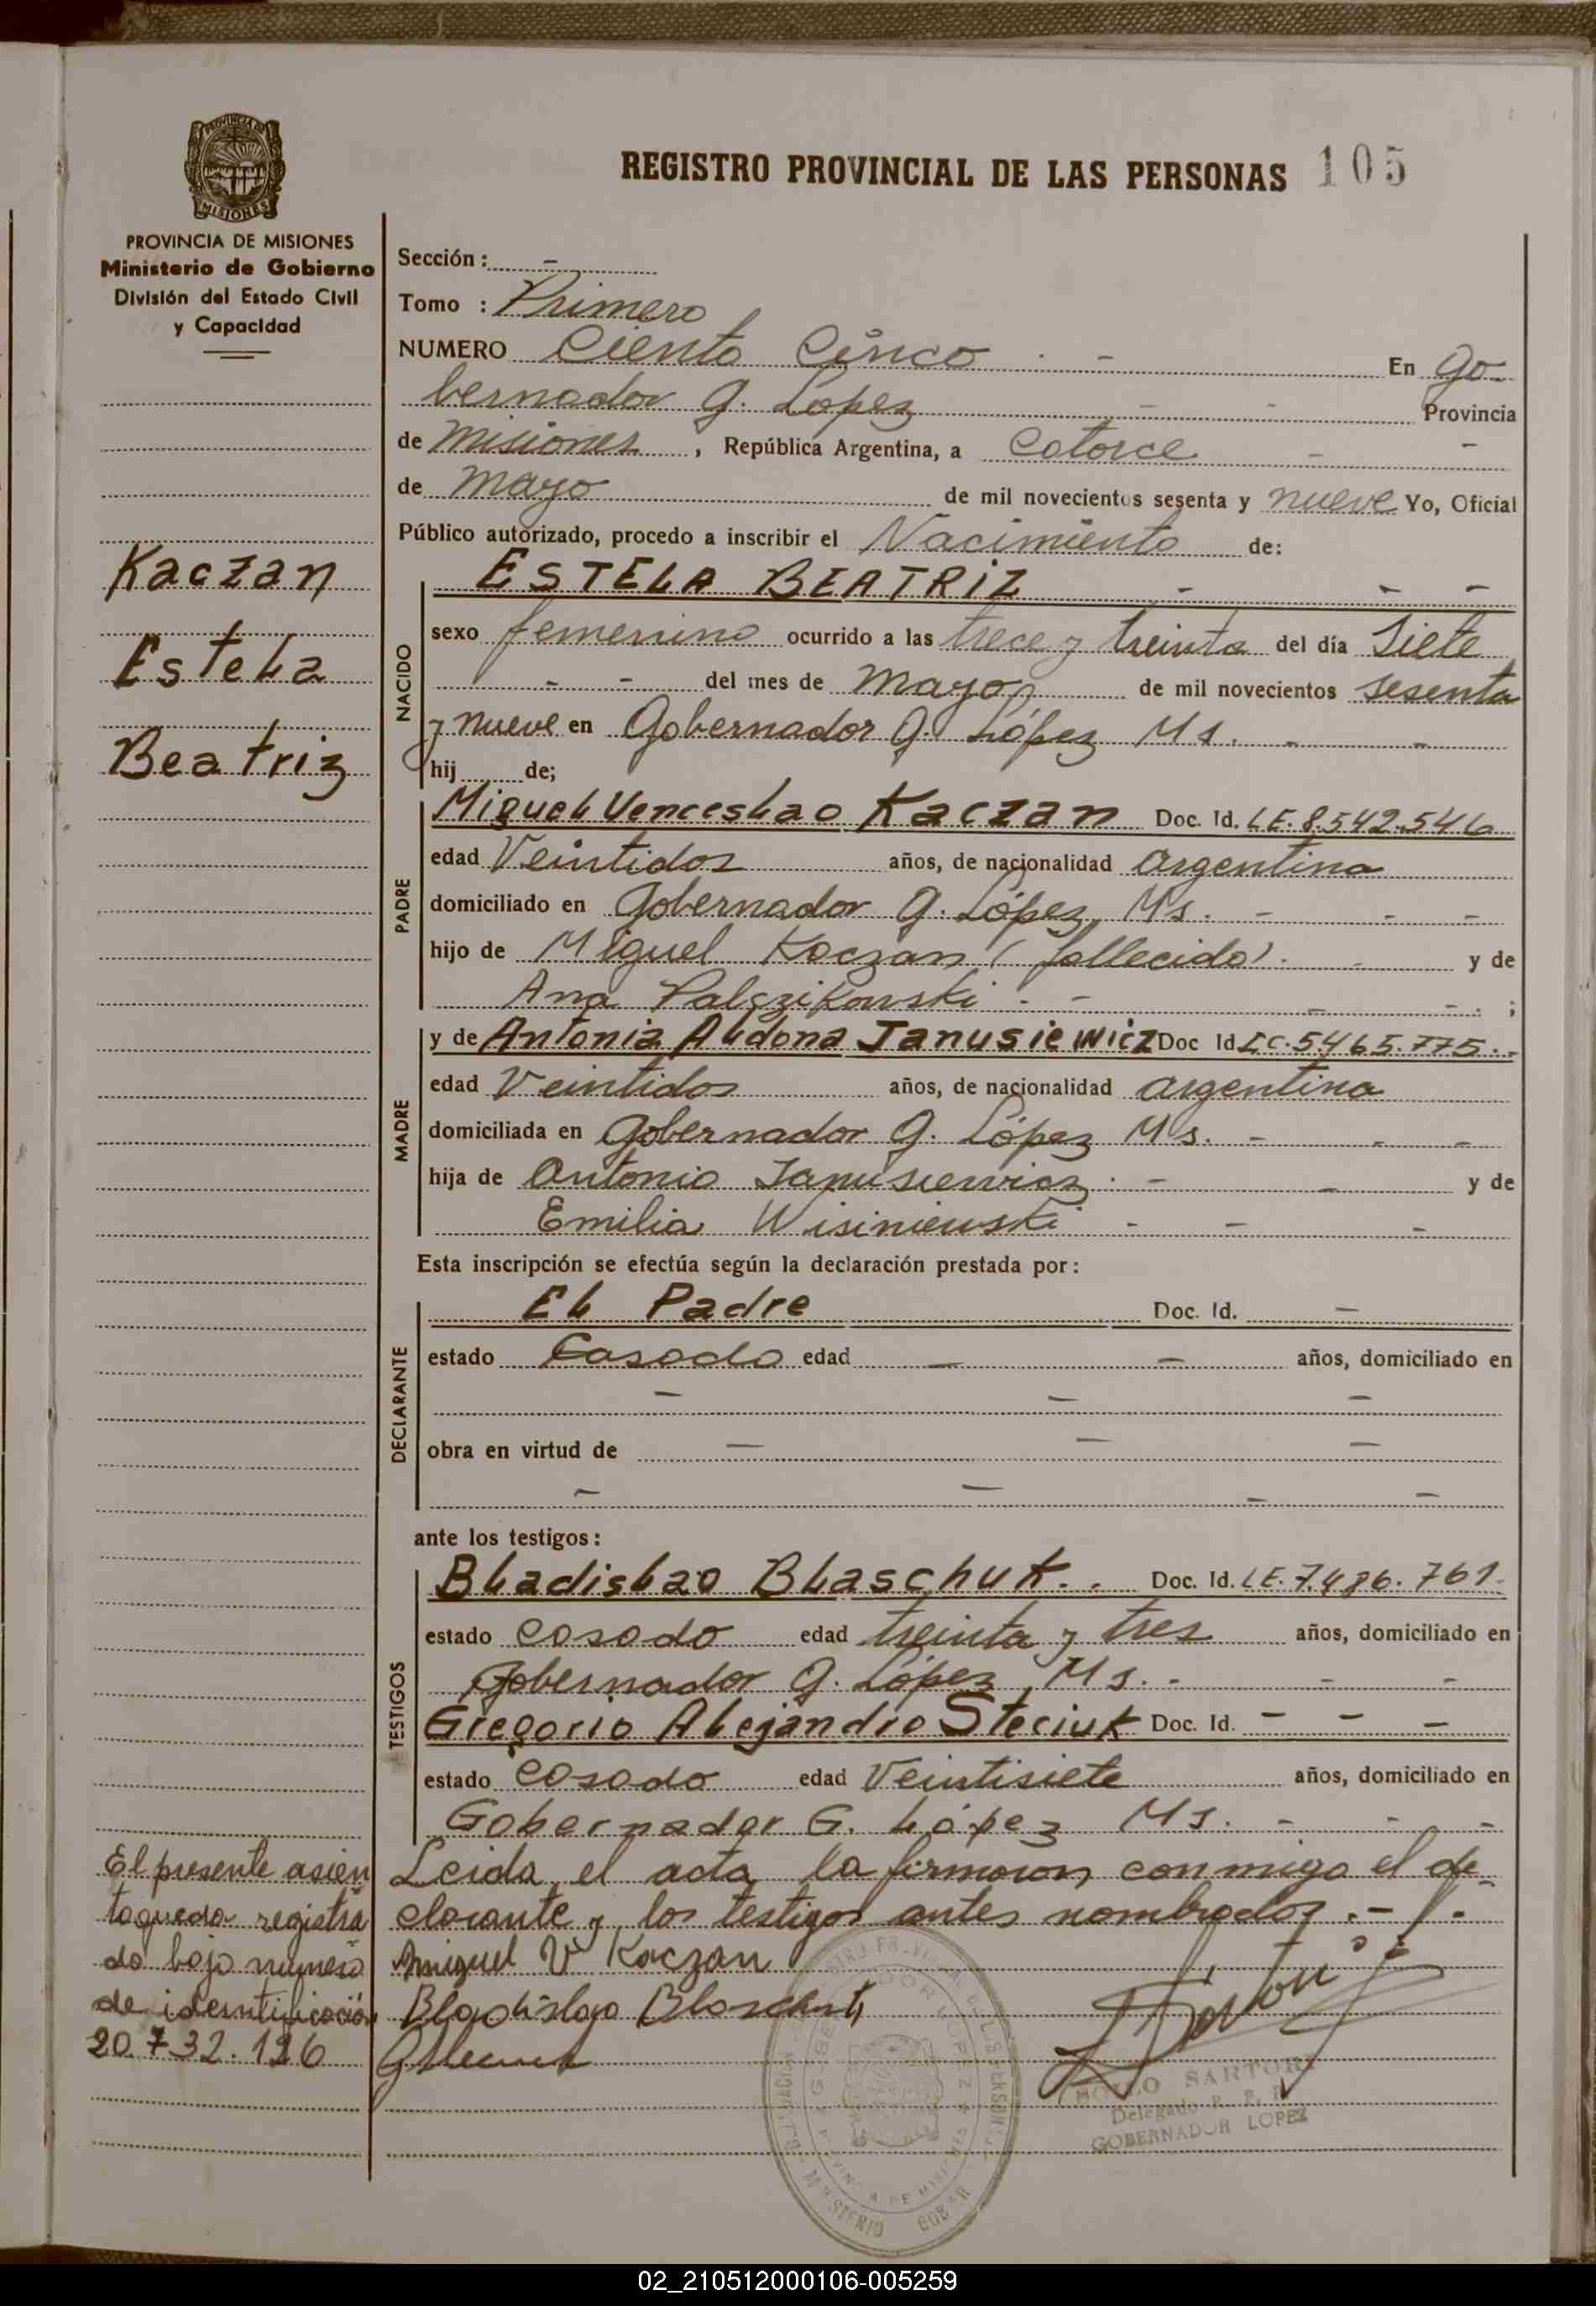 REGISTRO PROVINCIAL DE LAS PERSONAS 105
PROVINCIA DE MISIONES
Ministerio de Gobierno
División del Estado Civil
y Capacidad
Kaczan
Estela
Beatriz
El presente asien
to queda registra
do bajo numero
de identificación
20.732.126
Sección : -
Tomo : Primero
NUMERO Ciento Cinco - En Go-
bernador G. López - - Provincia
de Misiones , República Argentina, a Catorce - -
de Mayo de mil novecientos sesenta y nueve Yo, Oficial
Público autorizado, procedo a inscribir el Nacimiento de:
NACIDO
ESTELA BEATRIZ - - -
sexo femenino ocurrido a las trece y treinta del día Siete
- - del mes de Mayo de mil novecientos sesenta
y nueve en Gobernador G. López Ms. - -
hij de;
PADRE
Miguel Venceslao Kaczan Doc. Id. LE. 8.542.546
edad Veintidos años, de nacionalidad argentina
domiciliado en Gobernador G. López, Ms. - - -
hijo de Miguel Kaczan (fallecido). - y de
Ana - - - - . ;
MADRE
y de Antonia Aldona Janusiewicz Doc Id LC. 5465.775. -
edad Veintidos años, de nacionalidad argentina
domiciliada en Gobernador G. López Ms. - - -
hija de Antonio Janusiewicz. - - y de
Emilia Wisiniewski - - -
Esta inscripción se efectúa según la declaración prestada por :
DECLARANTE
El Padre Doc. Id. -
estado Casado edad - - años, domiciliado en
- - -
obra en virtud de - - -
- - - -
ante los testigos :
TESTIGOS
Bladislao Blaschuk. . Doc. Id. LE. 7.486.761.
estado Casado edad treinta y tres años, domiciliado en
Gobernador G. López, Ms. - - -
Gregorio Alejandro Steciuk Doc. Id. - - -
estado Casado edad Veintisiete años, domiciliado en
Gobernador G. López Ms. - - -
Leida el acta la firmaron conmigo el de-
clarante y los testigos antes nombrados . -
Miguel V Kaczan
Bladislao Blaschuk
SARTORI
Delegado R. P. P.
GOBERNADOR LOPEZ
02_210512000106-005259